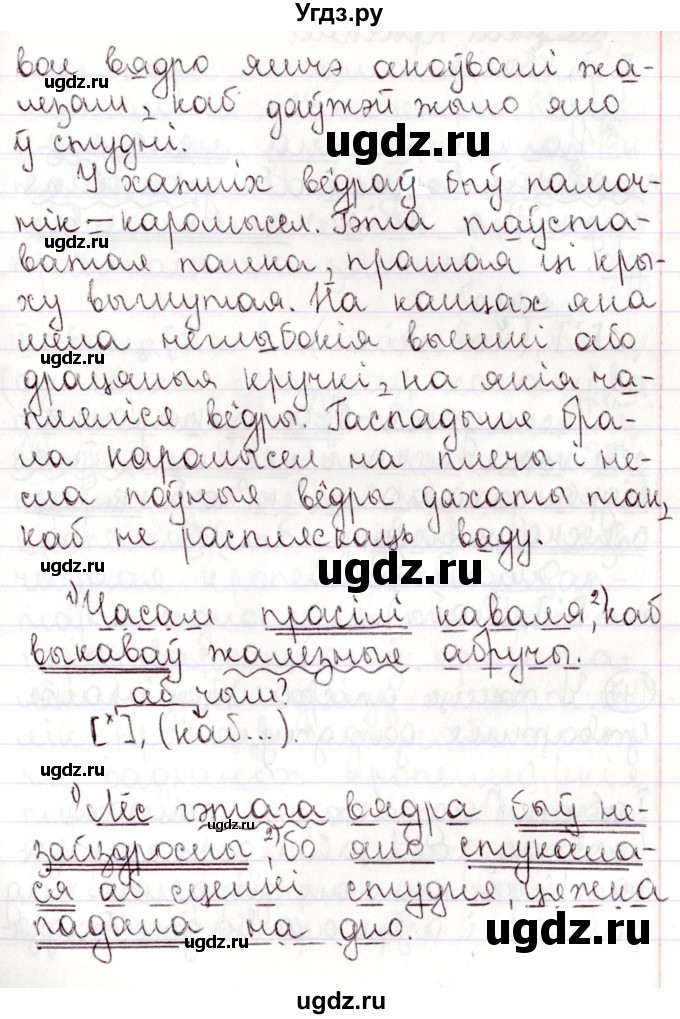 Угдз.ру
вои вядро яшчэ акоўвалі жа-
лезам, каб даўжэй жыло яно
ў студні.
У хатніх вёдраў быў памоч-
нік – каромысел. Гэта таўста-
ватая палка, прамая ці кры-
ху выгнутая. На канцах яна
мела неглыбокія выемкі або
драцяныя кручкі, на якія ча-
пляліся вёдры. Гаспадыня бра-
ла каромысел на плечы і не-
сла поўныя вёдры дахаты так,
каб не расплёскаць ваду.
1) Часам прасілі каваля, 2) каб
выкаваў жалезныя абручы.
аб чым?
[ˣ], (каб...).
1) Лёс гэтага вядра быў не-
зайздросны, 2) бо яно стукала-
ся аб сценкі студня, цяжка
падала на дно.
ugdz.ru
ugdz.ru
ugdz.ru
ugdz.ru
ugdz.ru
ugdz.ru
ugdz.ru
ugdz.ru
ugdz.ru
ugdz.ru
ugdz.ru
ugdz.ru
ugdz.ru